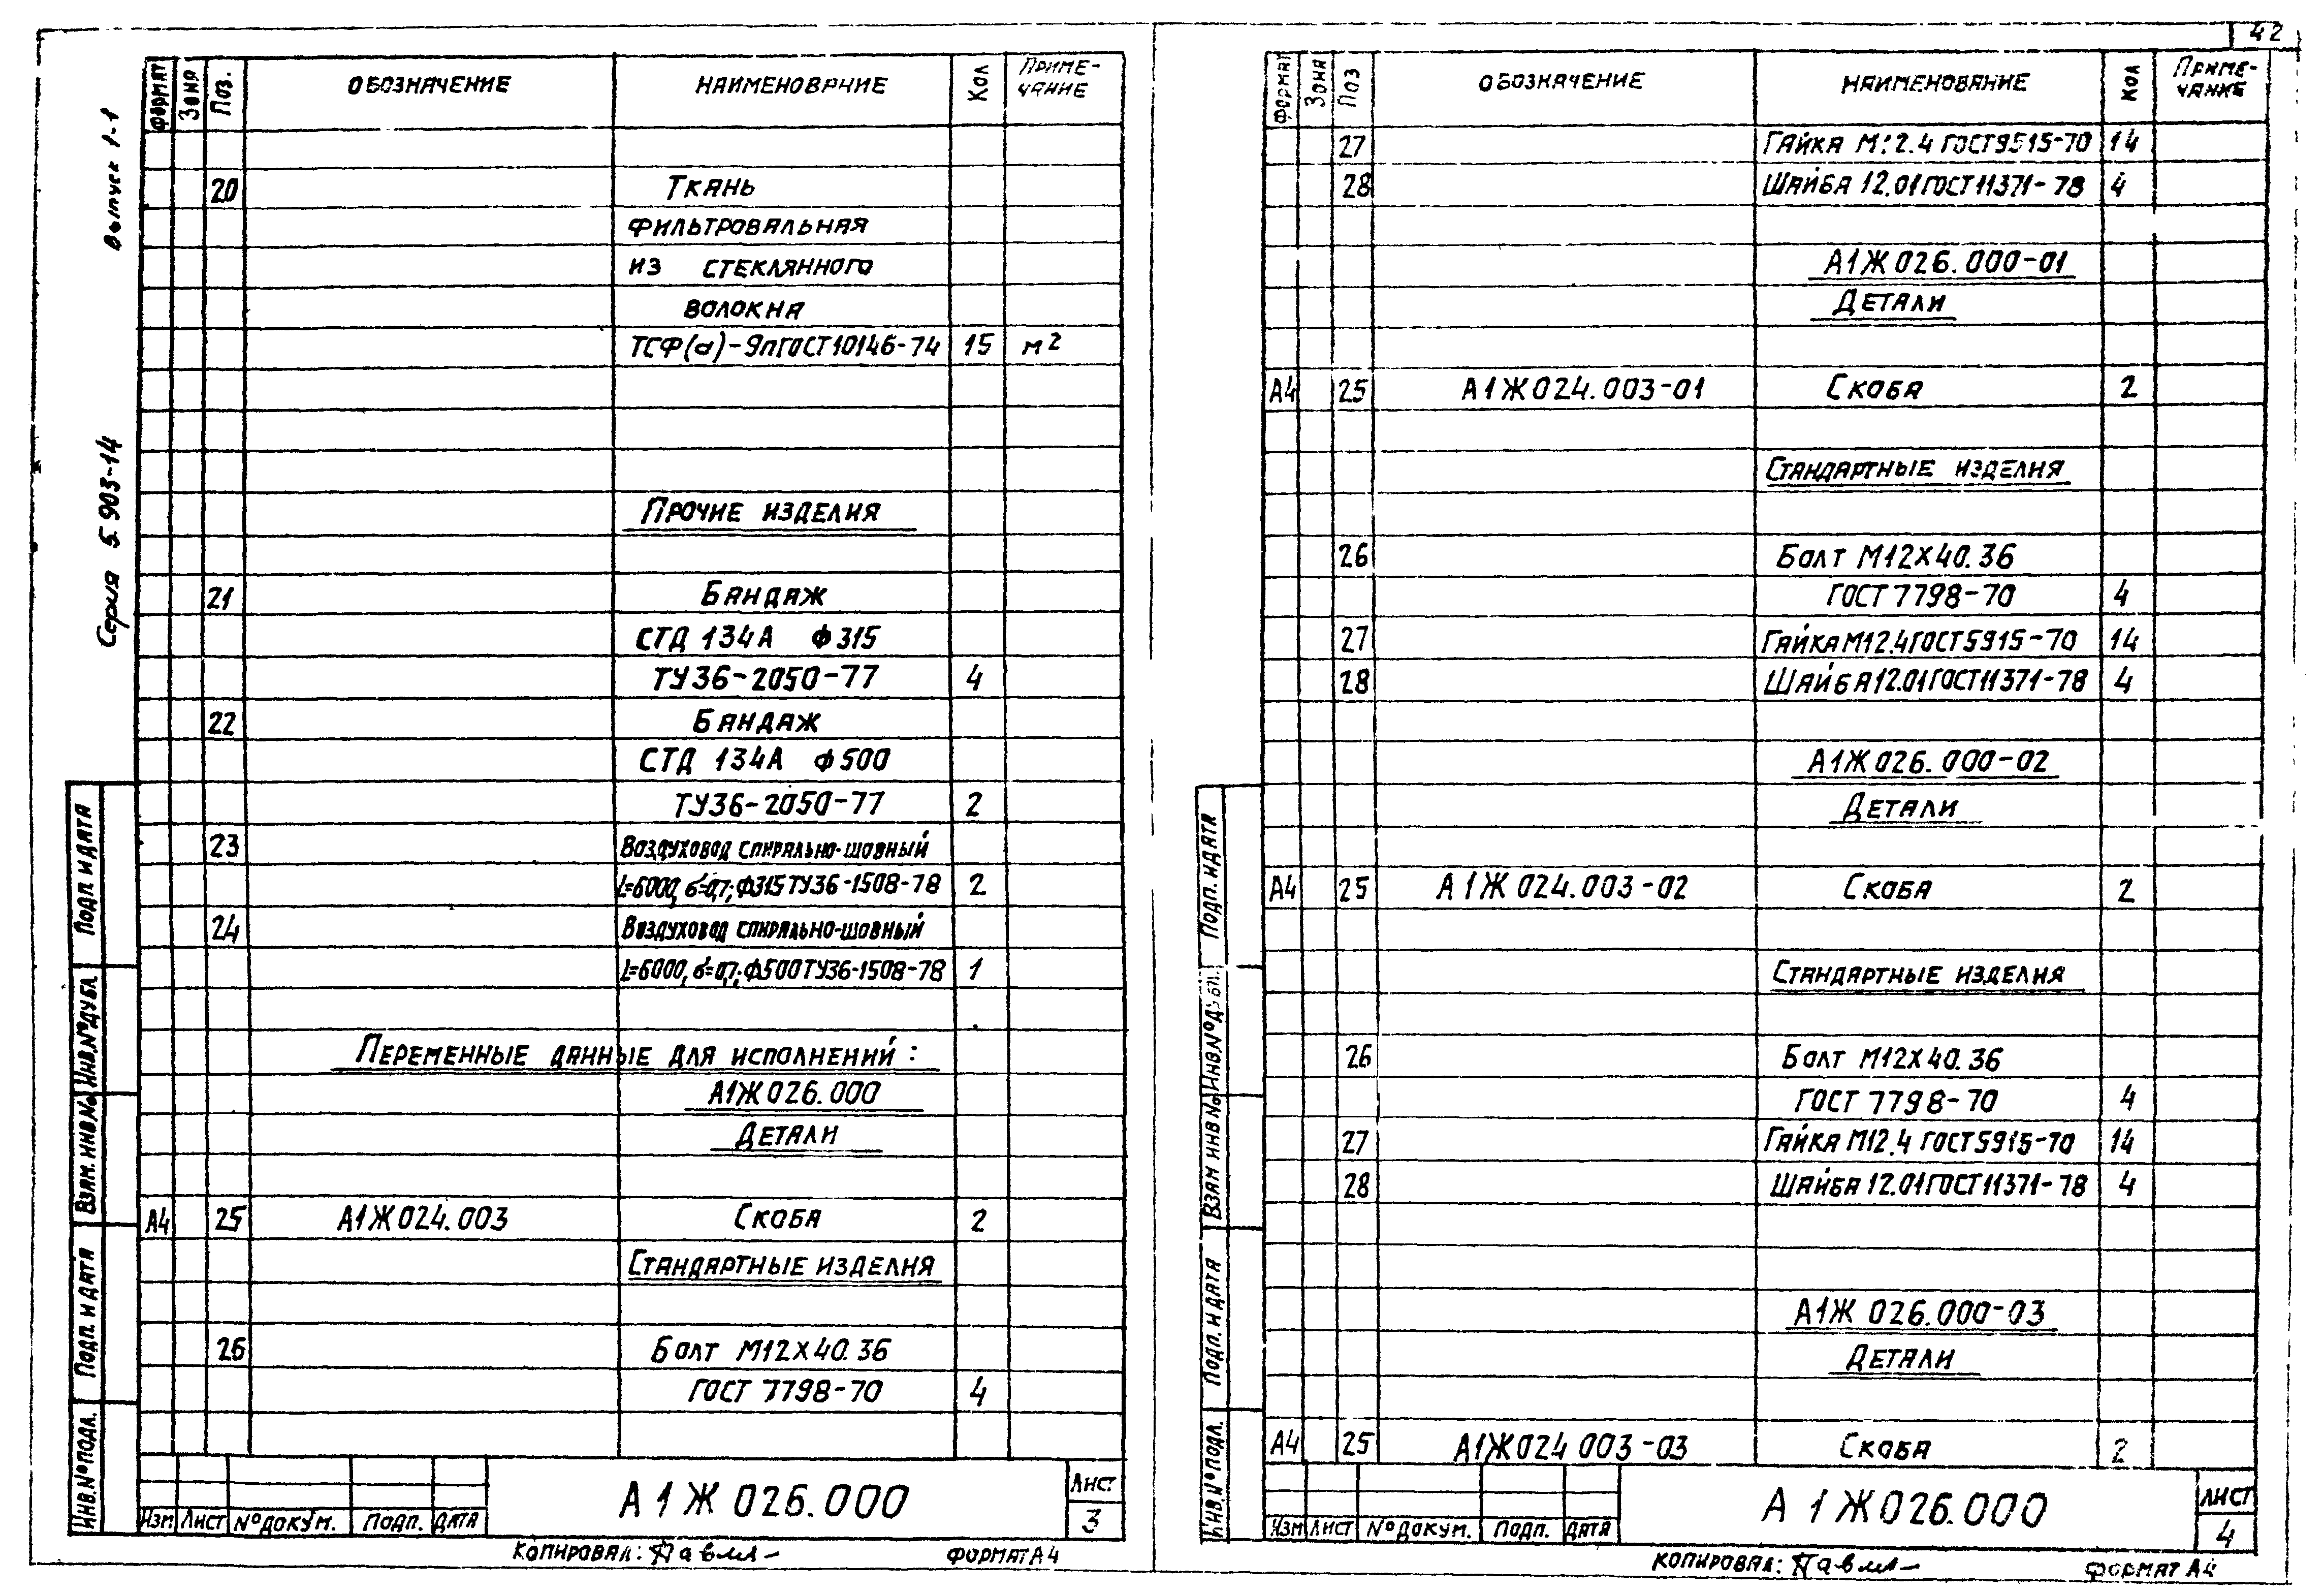 42
Выпуск 1-1
Серия 5.903-14
ФОРМАТ Зона Поз. ОБОЗНАЧЕНИЕ НАИМЕНОВАНИЕ Кол ПРИМЕ-
ЧАНИЕ
20 Ткань
фильтровальная
из стеклянного
волокна
ТСФ(а)-9пГОСТ10146-74 15 м2
Прочие изделия
21 Бандаж
СТД 134А Ф315
ТУ36-2050-77 4
22 Бандаж
СТД 134А Ф500
ТУ36-2050-77 2
23 Воздуховод спирально-шовный
L=6000, б=0,7; Ф315 ТУ36-1508-78 2
24 Воздуховод спирально-шовный
L=6000, б=0,7; Ф500 ТУ36-1508-78 1
Переменные данные для исполнений:
А1Ж026.000
Детали
А4 25 А1Ж024.003 Скоба 2
Стандартные изделия
26 Болт М12х40.36
ГОСТ 7798-70 4
Подп. и дата
Инв.№дубл.
Взам. инв.№
Подп. и дата
Инв.№подл.
Изм Лист №докум. Подп. Дата
А1Ж026.000
Лист
3
Копировал: Павил-
Формат А4
ФОРМАТ Зона Поз ОБОЗНАЧЕНИЕ НАИМЕНОВАНИЕ Кол ПРИМЕ-
ЧАНИЕ
27 Гайка М12.4 ГОСТ9515-70 14
28 Шайба 12.01 ГОСТ11371-78 4
А1Ж026.000-01
Детали
А4 25 А1Ж024.003-01 Скоба 2
Стандартные изделия
26 Болт М12х40.36
ГОСТ 7798-70 4
27 Гайка М12.4 ГОСТ5915-70 14
28 Шайба 12.01 ГОСТ11371-78 4
А1Ж026.000-02
Детали
А4 25 А1Ж024.003-02 Скоба 2
Стандартные изделия
26 Болт М12х40.36
ГОСТ 7798-70 4
27 Гайка М12.4 ГОСТ5915-70 14
28 Шайба 12.01 ГОСТ11371-78 4
А1Ж 026.000-03
Детали
А4 25 А1Ж024 003-03 Скоба 2
Подп. и дата
Инв.№дубл.
Взам инв.№
Подп. и дата
Инв.№подл.
Изм Лист №докум. Подп. Дата
А1Ж026.000
Лист
4
Копировал: Павил-
Формат А4